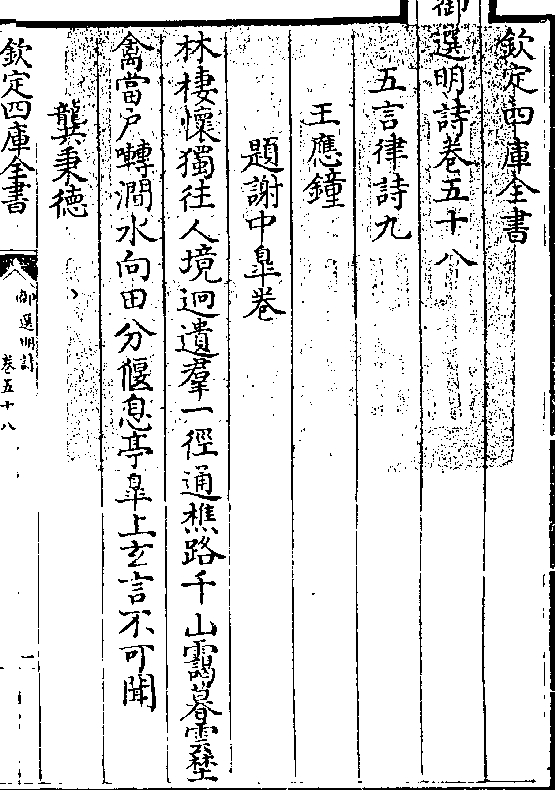 欽定四庫全書
御選明詩卷五十八
五言律詩九
王應鐘
題謝中臯卷
林棲懷獨往人境迥遺羣一徑通樵路千山靄暮雲壑
禽當戶囀澗水向田分偃息亭臯上玄言不可聞
龔秉德
欽定四庫全書
御選明詩
卷五十八
一